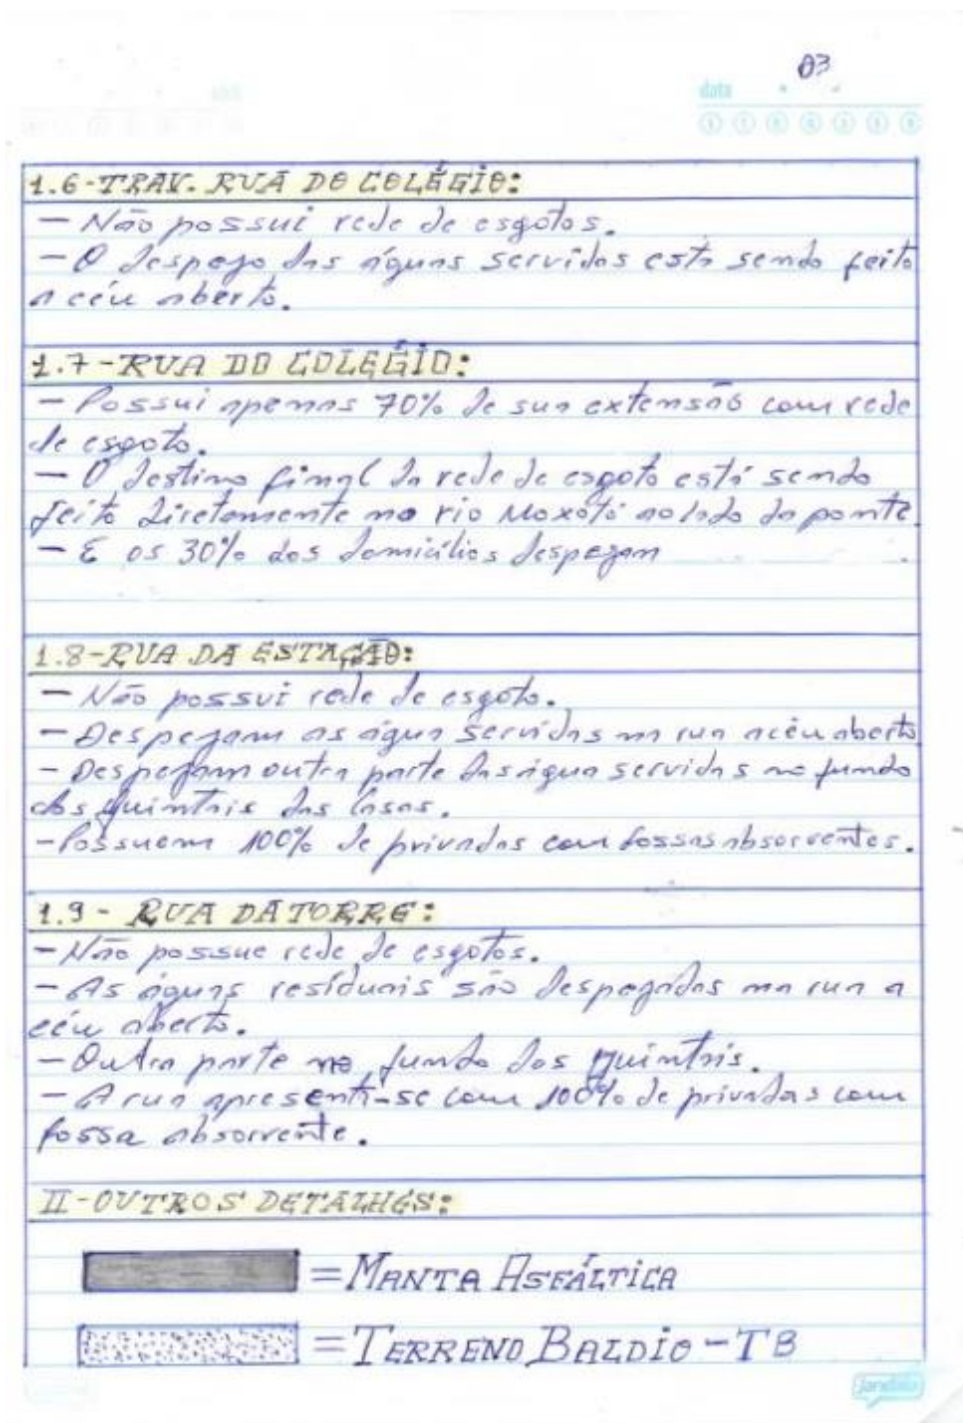 03
data
S T Q Q S S D
1.6-TRAV. RUA DO COLÉGIO:
- Não possui rede de esgotos.
- O despejo das águas servidas está sendo feito
a céu aberto.
1.7-RUA DO COLÉGIO:
- Possui apenas 70% de sua extensão com rede
de esgoto.
- O destino final da rede de esgoto está sendo
feito diretamente no rio Moxotó ao lado da ponte
- E os 30% dos domicílios despejam
1.8-RUA DA ESTAÇÃO:
- Não possui rede de esgoto.
- Despejam as água servidas na rua a céu aberto
- Despejam outra parte das água servidas no fundo
dos quintais das casas.
- Possuem 100% de privadas com fossas absorventes.
1.9- RUA DA TORRE:
- Não possue rede de esgotos.
- As águas residuais são despejadas na rua a
céu aberto.
- Outra parte no fundo dos quintais.
- A rua apresenta-se com 100% de privadas com
fossa absorvente.
II-OUTROS DETALHES:
= MANTA ASFÁLTICA
= TERRENO BALDIO-TB
jandaia